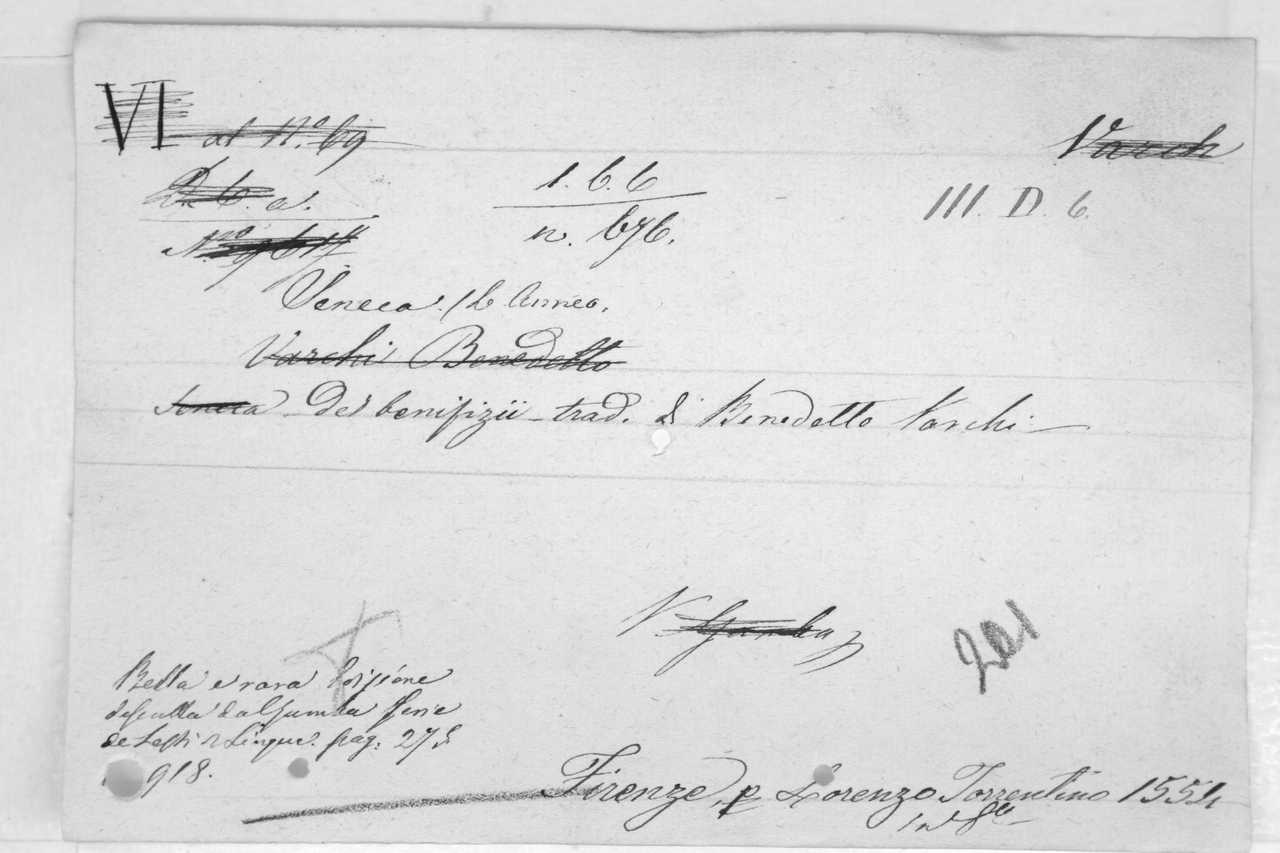 VI al N.º 69
Varch
1. 6. 6
III. D. 6.
n. 676.
Seneca. (L. Anneo.
Varchi Benedetto
Seneca - De' benifizii - trad. di Benedetto Varchi
V. Gamba
201
Bella e rara Edizione
da Gamba Serie
de Testi di Lingua. pag: 275
918.
Firenze, p Lorenzo Torrentino 1554
in 8º